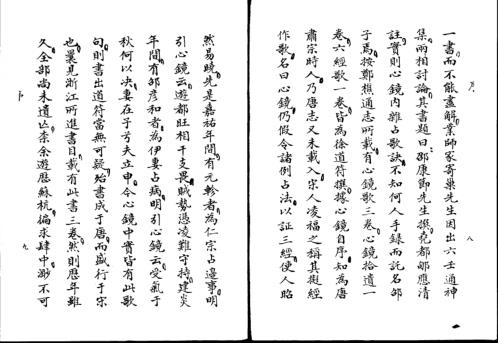 一書而不能盡解業師家寄巢先生因出六壬通神
集兩相討論其書題曰邵康節先生撰堯都鄒應清
註實則心鏡內雜占歌訣不知何人手錄而託名邵
子焉按鄭樵通志所載有心鏡歌三卷心鏡拾遺一
卷六經歌一卷皆為徐道符撰據心鏡自序知為唐
肅宗時人乃唐志又未載入宋人凌福之稱其擬經
作歌名曰心鏡仍假令諸例占法以証三經使人昭
八
然易曉先是嘉祐年間有元軫者為仁宗占邊事明
引心鏡云遊都旺相干支畏賊勢憑凌難守持建炎
年間有邵彥和者為伊妻占病明引心鏡云受氣于
秋何以決妻在子兮夫立申今心鏡中實皆有此歌
句則書出道符當無可疑殆書成于唐而盛行于宋
也曩見浙江所進書目載有此書三卷然則歷年雖
久全部尚未遺亡柰余遊歷蘇杭徧求肆中渺不可
九